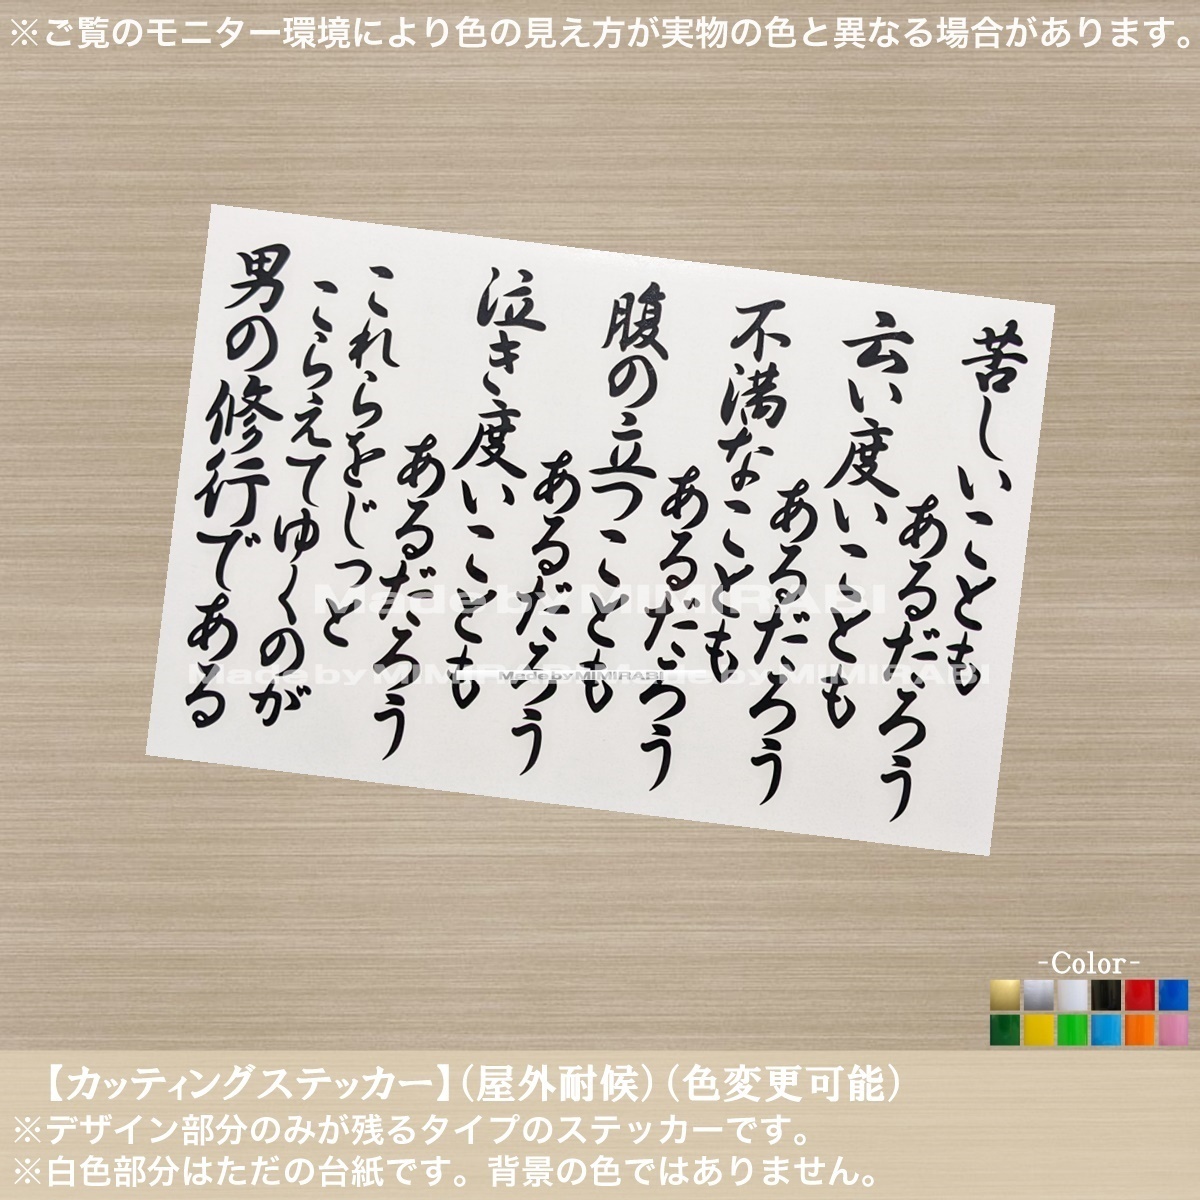 ※ご覧のモニター環境により色の見え方が実物の色と異なる場合があります。
苦しいことも
あるだろう
云い度いことも
あるだろう
不満なことも
あるだろう
腹の立つことも
あるだろう
泣き度いことも
あるだろう
これらをじっと
こらえてゆくのが
男の修行である
Made by MIMIRABI
Made by MIMIRABI
Made by MIMIRABI
Made by MIMIRABI
-Color-
【カッティングステッカー】(屋外耐候)(色変更可能)
※デザイン部分のみが残るタイプのステッカーです。
※白色部分はただの台紙です。背景の色ではありません。